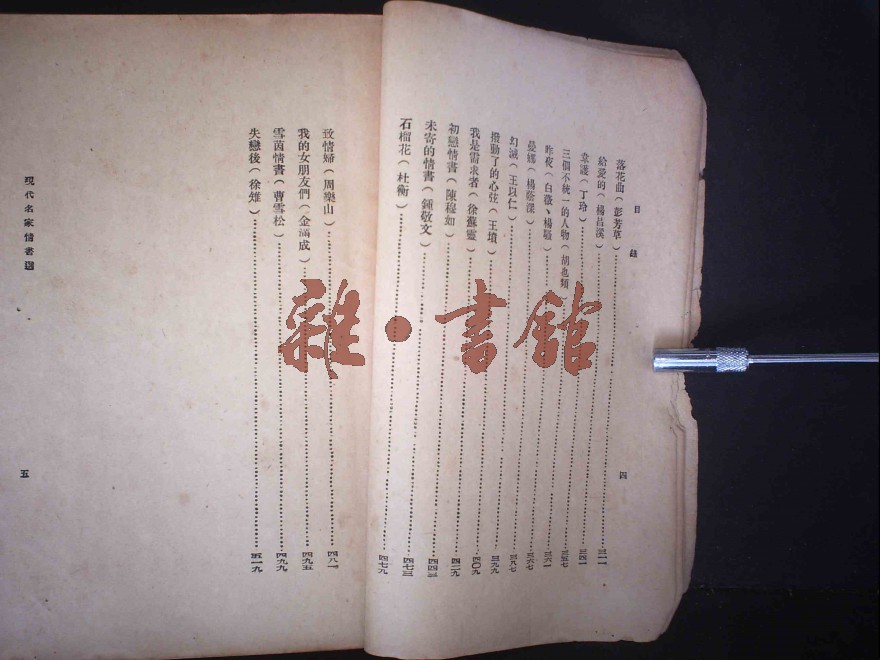 目錄
落花曲（彭芳草）……三一一
給愛的（楊昌溪）
韋護（丁玲）……三四一
三個不統一的人物（胡也頻）……三五七
昨夜（白薇、楊騷）……三六一
曼娜（楊蔭深）……三六七
幻滅（王以仁）……三八七
撥動了的心弦（王墳）……三九九
我是需求者（徐蘇靈）……四〇九
初戀情書（陳穆如）……四二九
未寄的情書（鍾敬文）……四四三
石榴花（杜衡）……四七三
四七九
四
致情婦（周樂山）……四八一
我的女朋友們（金滿成）……四九五
雪茵情書（曹雪松）……四九九
失戀後（徐雉）……五一九
現代名家情書選
五
雜·書館